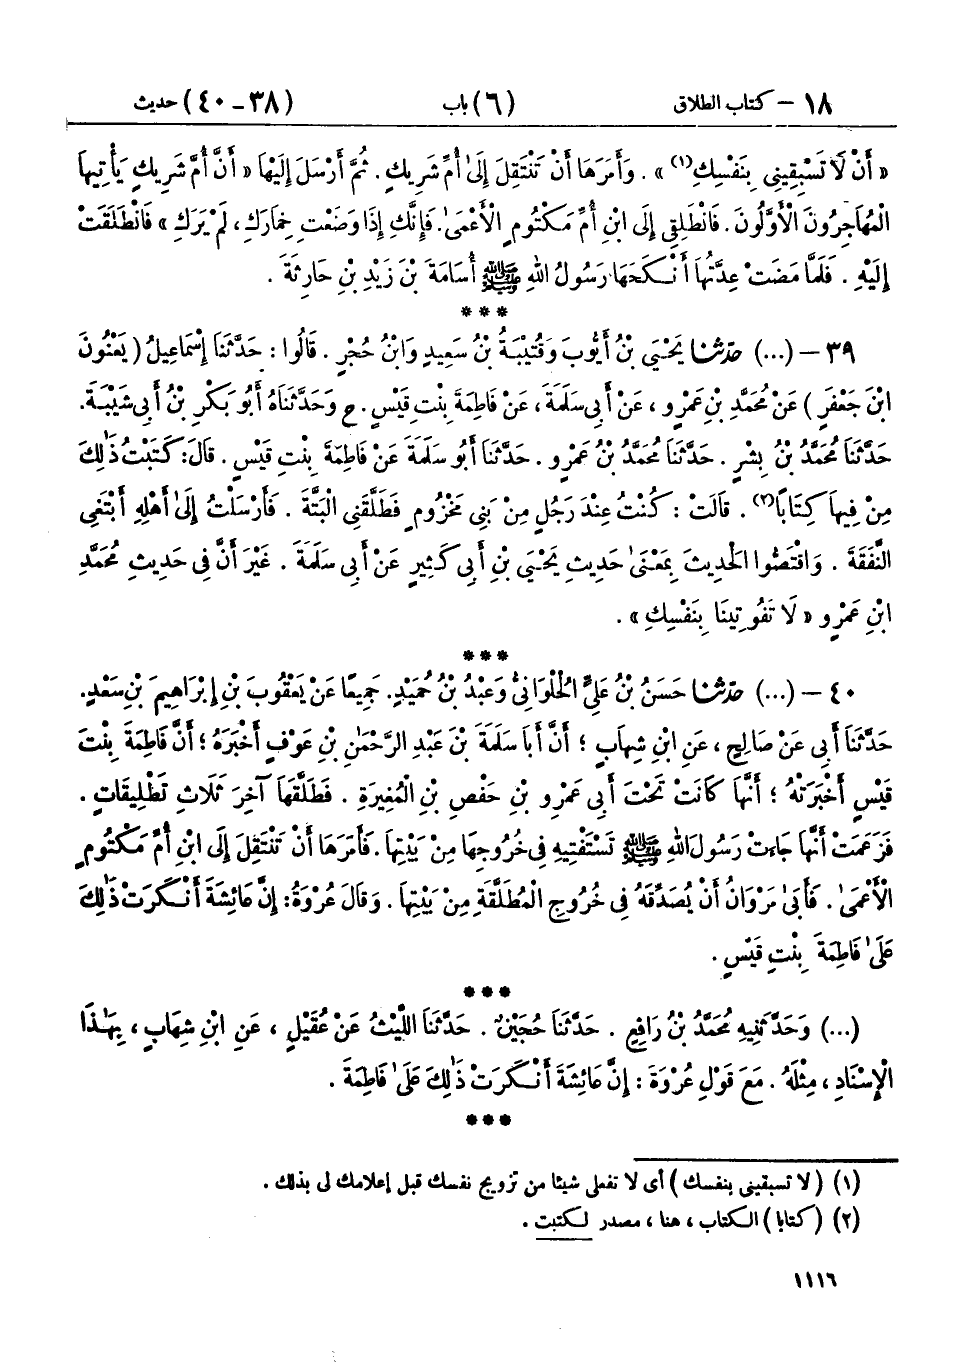 ١٨ – كتاب الطلاق (٦) باب (٣٨–٤٠) حديث
« أَنْ لَا تَسْبِقِينِى بِنَفْسِكِ(١) » . وَأَمَرَهَا أَنْ تَنْتَقِلَ إِلَىٰ أُمِّ شَرِيكٍ . ثُمَّ أَرْسَلَ إِلَيْهَا « أَنَّ أُمَّ شَرِيكٍ يَأْتِيهَا
الْمُهَاجِرُونَ الْأَوَّلُونَ . فَانْطَلِقِى إِلَى ابْنِ أُمِّ مَكْتُومٍ الْأَعْمَىٰ . فَإِنَّكِ إِذَا وَضَعْتِ خِمَارَكِ ، لَمْ يَرَكِ » فَانْطَلَقَتْ
إِلَيْهِ . فَلَمَّا مَضَتْ عِدَّتُهَا أَنْكَحَهَا رَسُولُ اللهِ ﷺ أُسَامَةَ بْنَ زَيْدِ بْنِ حَارِثَةَ .
***
٣٩ – (...) حدّثنا يَحْيَى بْنُ أَيُّوبَ وَقُتَيْبَةُ بْنُ سَعِيدٍ وَابْنُ حُجْرٍ . قَالُوا : حَدَّثَنَا إِسْمَاعِيلُ ( يَعْنُونَ
ابْنَ جَعْفَرٍ ) عَنْ مُحَمَّدِ بْنِ عَمْرٍو ، عَنْ أَبِى سَلَمَةَ ، عَنْ فَاطِمَةَ بِنْتِ قَيْسٍ . ح وَحَدَّثَنَاهُ أَبُو بَكْرِ بْنُ أَبِى شَيْبَةَ .
حَدَّثَنَا مُحَمَّدُ بْنُ بِشْرٍ . حَدَّثَنَا مُحَمَّدُ بْنُ عَمْرٍو . حَدَّثَنَا أَبُو سَلَمَةَ عَنْ فَاطِمَةَ بِنْتِ قَيْسٍ . قَالَ : كَتَبْتُ ذَٰلِكَ
مِنْ فِيهَا كِتَابًا(٢) . قَالَتْ : كُنْتُ عِنْدَ رَجُلٍ مِنْ بَنِى مَخْزُومٍ فَطَلَّقَنِى الْبَتَّةَ . فَأَرْسَلْتُ إِلَىٰ أَهْلِهِ أَبْتَغِى
النَّفَقَةَ . وَاقْتَصُّوا الْحَدِيثَ بِمَعْنَىٰ حَدِيثِ يَحْيَىٰ بْنِ أَبِى كَثِيرٍ عَنْ أَبِى سَلَمَةَ . غَيْرَ أَنَّ فِى حَدِيثِ مُحَمَّدِ
ابْنِ عَمْرٍو « لَا تَفُوتِينَا بِنَفْسِكِ » .
***
٤٠ – (...) حدّثنا حَسَنُ بْنُ عَلِىٍّ الْحُلْوَانِىُّ وَعَبْدُ بْنُ حُمَيْدٍ . جَمِيعًا عَنْ يَعْقُوبَ بْنِ إِبْرَاهِيمَ بْنِ سَعْدٍ .
حَدَّثَنَا أَبِى عَنْ صَالِحٍ ، عَنِ ابْنِ شِهَابٍ ؛ أَنَّ أَبَا سَلَمَةَ بْنَ عَبْدِ الرَّحْمٰنِ بْنِ عَوْفٍ أَخْبَرَهُ ؛ أَنَّ فَاطِمَةَ بِنْتَ
قَيْسٍ أَخْبَرَتْهُ ؛ أَنَّهَا كَانَتْ تَحْتَ أَبِى عَمْرِو بْنِ حَفْصِ بْنِ الْمُغِيرَةِ . فَطَلَّقَهَا آخِرَ ثَلَاثِ تَطْلِيقَاتٍ .
فَزَعَمَتْ أَنَّهَا جَاءَتْ رَسُولَ اللهِ ﷺ تَسْتَفْتِيهِ فِى خُرُوجِهَا مِنْ بَيْتِهَا . فَأَمَرَهَا أَنْ تَنْتَقِلَ إِلَى ابْنِ أُمِّ مَكْتُومٍ
الْأَعْمَىٰ . فَأَبَىٰ مَرْوَانُ أَنْ يُصَدِّقَهُ فِى خُرُوجِ الْمُطَلَّقَةِ مِنْ بَيْتِهَا . وَقَالَ عُرْوَةُ : إِنَّ عَائِشَةَ أَنْكَرَتْ ذَٰلِكَ
عَلَىٰ فَاطِمَةَ بِنْتِ قَيْسٍ .
***
(...) وَحَدَّثَنِيهِ مُحَمَّدُ بْنُ رَافِعٍ . حَدَّثَنَا حُجَيْنٌ . حَدَّثَنَا اللَّيْثُ عَنْ عُقَيْلٍ ، عَنِ ابْنِ شِهَابٍ ، بِهٰذَا
الْإِسْنَادِ ، مِثْلَهُ . مَعَ قَوْلِ عُرْوَةَ : إِنَّ عَائِشَةَ أَنْكَرَتْ ذَٰلِكَ عَلَىٰ فَاطِمَةَ .
***
(١) ( لا تسبقينى بنفسك ) أى لا تفعلى شيئا من تزويج نفسك قبل إعلامك لى بذلك .
(٢) ( كتابا ) الكتاب ، هنا ، مصدر لكتبت .
١١١٦